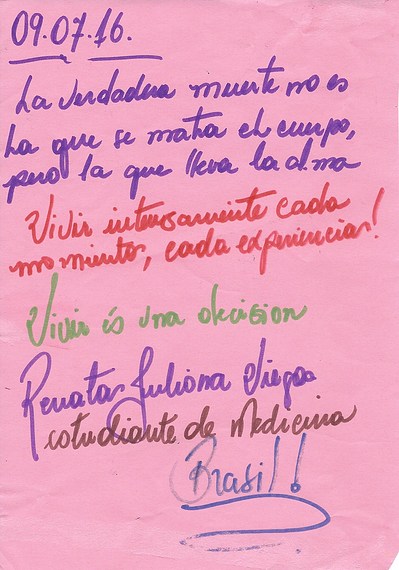 09.07.16.
La verdadera muerte no es
La que se mata el cuerpo,
pero la que lleva la alma
Vivir intensamente cada
momiento, cada experiencia!
Vivir és una decision
Renata Juliana Viegas
estudiante de Medicina
Brasil!!